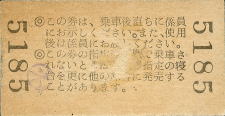 5185
◎この券は、乗車後直ちに係員
にお示しください。また、使用
後は係員にお渡しください。
◎この券の指定
ないときは、 指定の寝
台を更に他の に発売する
ことがあります。
5185